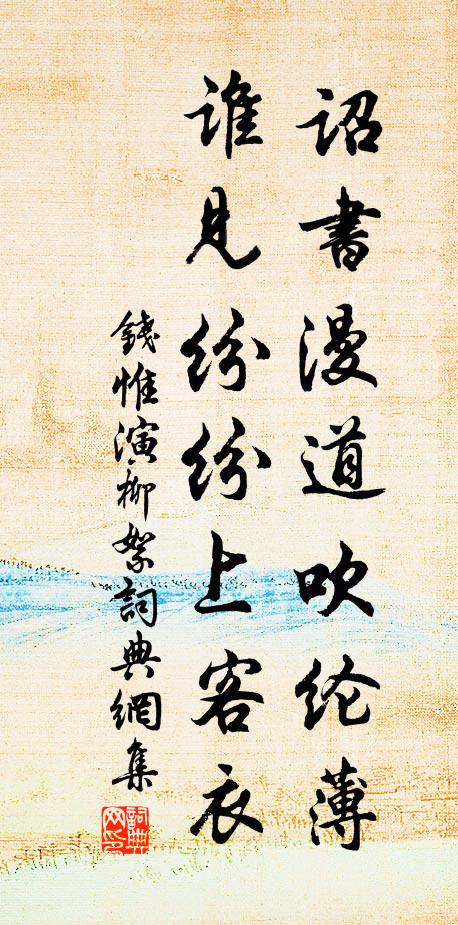 詔書漫道吹纶薄
誰見纷纷上客衣
錢惟演柳絮詞典網集
詞典网印